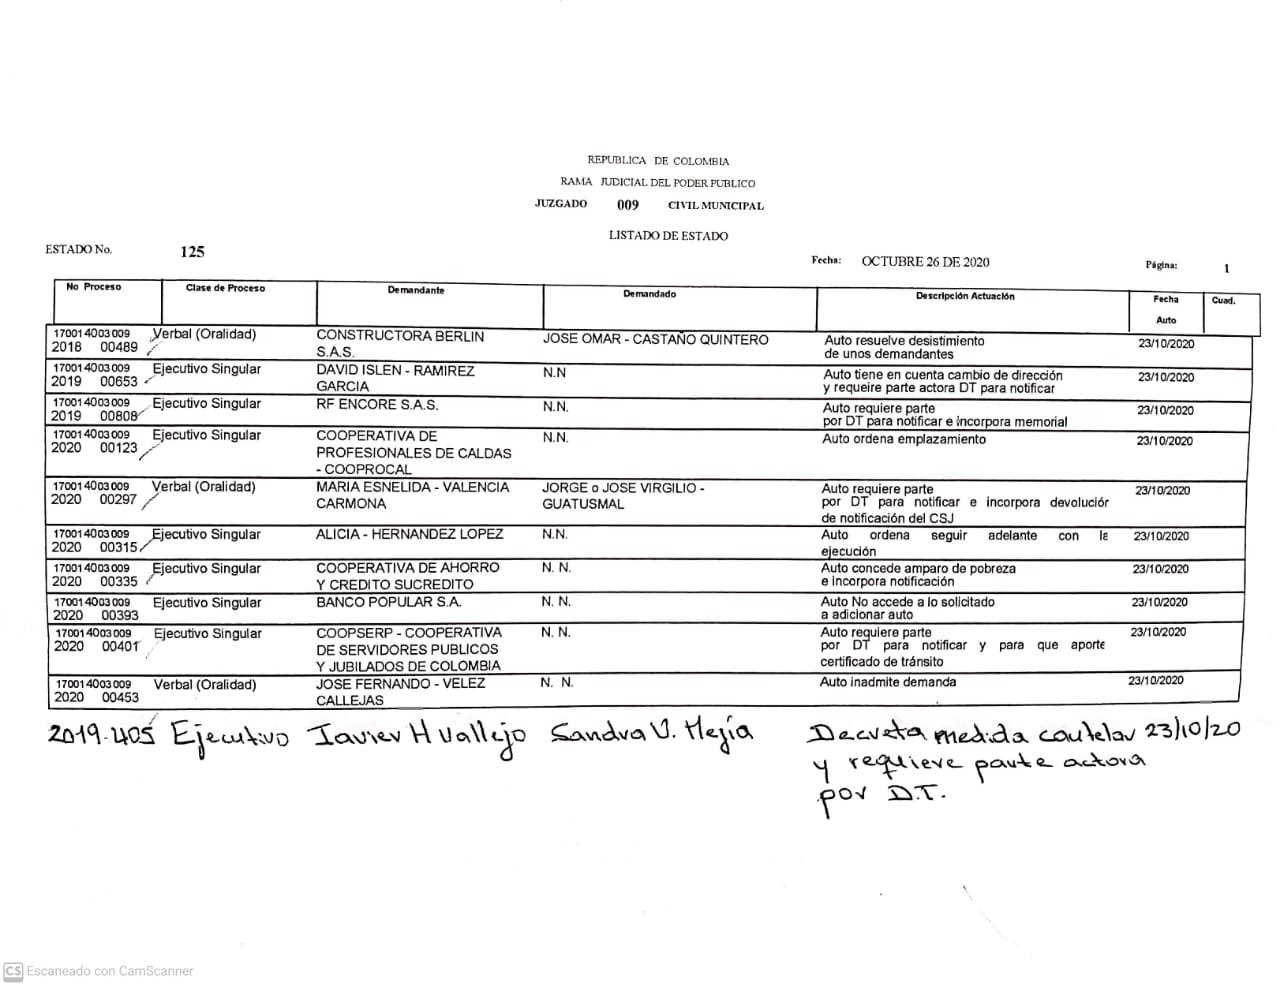 REPUBLICA DE COLOMBIA
RAMA JUDICIAL DEL PODER PUBLICO
JUZGADO 009 CIVIL MUNICIPAL
LISTADO DE ESTADO
ESTADO No. 125 Fecha: OCTUBRE 26 DE 2020 Página: 1
No Proceso Clase de Proceso Demandante Demandado Descripción Actuación Fecha Auto Cuad.
170014003009 Verbal (Oralidad) CONSTRUCTORA BERLIN JOSE OMAR - CASTAÑO QUINTERO Auto resuelve desistimiento 23/10/2020
2018 00489 S.A.S. de unos demandantes
170014003009 Ejecutivo Singular DAVID ISLEN - RAMIREZ N.N Auto tiene en cuenta cambio de dirección 23/10/2020
2019 00653 GARCIA y requeire parte actora DT para notificar
170014003009 Ejecutivo Singular RF ENCORE S.A.S. N.N. Auto requiere parte 23/10/2020
2019 00808 por DT para notificar e incorpora memorial
170014003009 Ejecutivo Singular COOPERATIVA DE N.N. Auto ordena emplazamiento 23/10/2020
2020 00123 PROFESIONALES DE CALDAS
- COOPROCAL
170014003009 Verbal (Oralidad) MARIA ESNELIDA - VALENCIA JORGE o JOSE VIRGILIO - Auto requiere parte 23/10/2020
2020 00297 CARMONA GUATUSMAL por DT para notificar e incorpora devolución
de notificación del CSJ
170014003009 Ejecutivo Singular ALICIA - HERNANDEZ LOPEZ N.N. Auto ordena seguir adelante con la 23/10/2020
2020 00315 ejecución
170014003009 Ejecutivo Singular COOPERATIVA DE AHORRO N. N. Auto concede amparo de pobreza 23/10/2020
2020 00335 Y CREDITO SUCREDITO e incorpora notificación
170014003009 Ejecutivo Singular BANCO POPULAR S.A. N. N. Auto No accede a lo solicitado 23/10/2020
2020 00393 a adicionar auto
170014003009 Ejecutivo Singular COOPSERP - COOPERATIVA N. N. Auto requiere parte 23/10/2020
2020 00401 DE SERVIDORES PUBLICOS por DT para notificar y para que aporte
Y JUBILADOS DE COLOMBIA certificado de tránsito
170014003009 Verbal (Oralidad) JOSE FERNANDO - VELEZ N. N. Auto inadmite demanda 23/10/2020
2020 00453 CALLEJAS
2019-405 Ejecutivo Javier H Vallejo Sandra V. Mejía Decreta medida cautelar 23/10/20
y requiere parte actora
por D.T.
CS Escaneado con CamScanner